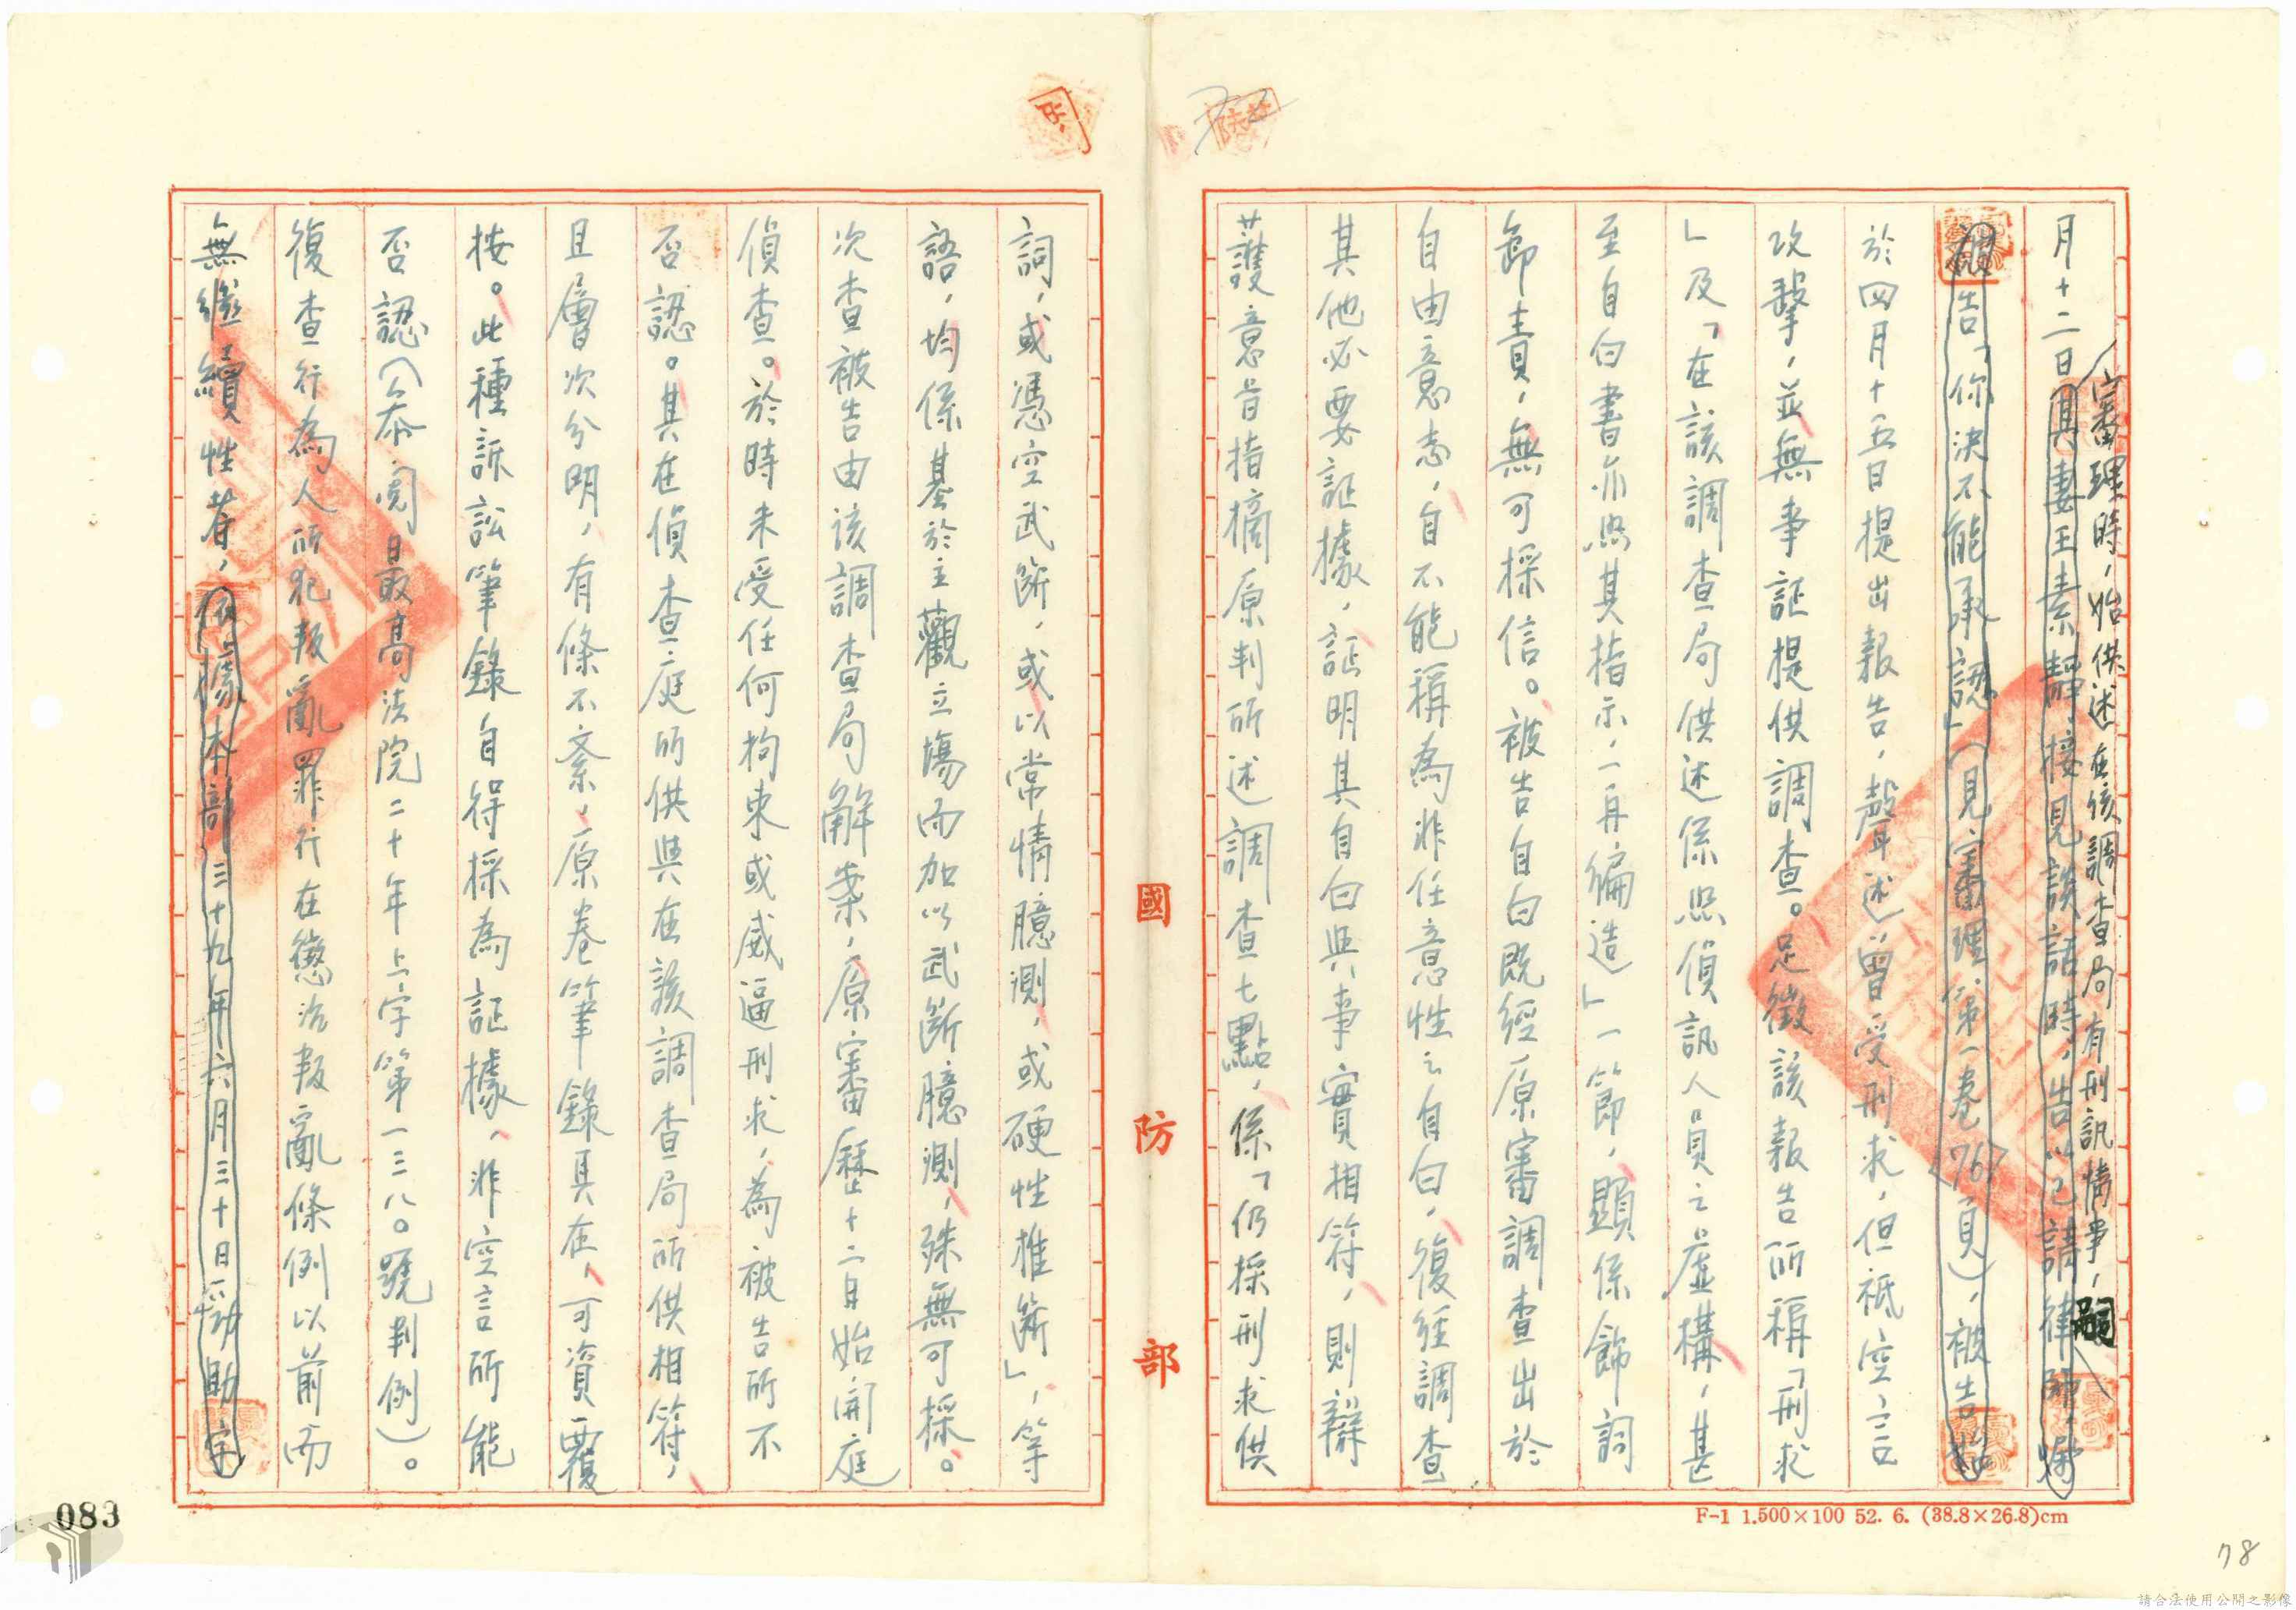 審理時，始供述在該調查局有刑訊情事，嗣
月十二日其妻王素靜接見談話時，告以已請律師，囑
被告「你決不能承認」（見審理第一卷76頁），被告
於四月十五日提出報告，聲述曾受刑求，但祗空言
攻擊，並無事証提供調查。足徵該報告所稱「刑求
」及「在該調查局供述係照偵訊人員之虛構，甚
至自白書亦照其指示，一再編造」一節，顯係飾詞
卸責，無可採信。被告自白既經原審調查出於
自由意志，自不能稱為非任意性之自白，復經調查
其他必要証據，証明其自白與事實相符，則辯
護意旨指摘原判所述調查七點，係「仍採刑求供
詞，或憑空武斷，或以常情臆測，或硬性推斷」，等
語，均係基於主觀立場而加以武斷臆測，殊無可採。
次查被告由該調查局解案，原審歷十二月始開庭
偵查。於時未受任何拘束或威逼刑求，為被告所不
否認。其在偵查庭所供與在該調查局所供相符，
且層次分明，有條不紊，原卷筆錄具在，可資覆
按。此種訴訟筆錄自得採為証據，非空言所能
否認（參閱最高法院二十年上字第一三八〇號判例）。
復查行為人所犯叛亂罪行在懲治叛亂條例以前而
無繼續性者，依據本部三十九年六月三十日勁助字
國防部
F-1 1.500×100 52. 6. (38.8×26.8)cm
083
78
請合法使用公開之影像